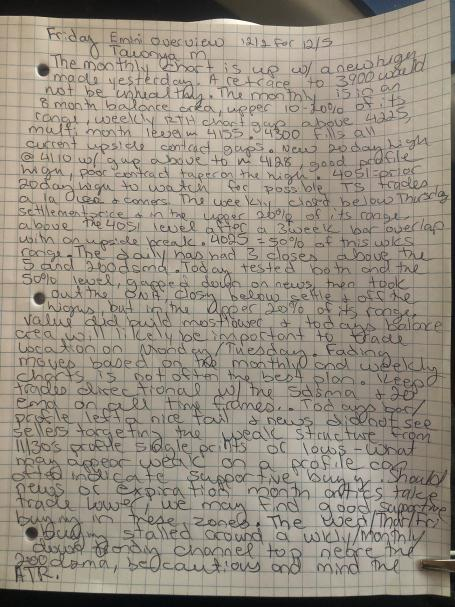 Friday Emini Overview 12/2 for 12/5
Tawonya M
The monthly chart is up w/ a new high
made yesterday. A retrace to 3900 would
not be unhealthy. The monthly is in an
8 month balance area, upper 10-20% of its
range, weekly RTH chart gap above 4225,
multi month level 4155. 4300 fills all
current upside contract gaps. New 20 day high
@ 4110 w/ gap above to 4128, good profile
high, poor contract taper on the high. 4051 = prior
20 day high to watch for possible TS trades
a la Dicea + comers. The weekly closed below Thursday
settlement price + in the upper 20% of its range
above the 4051 level after a 3 week bar overlap
with an upside break. 4025 = 50% of this wks
range. The daily has had 3 closes above the
5 and 200dsma. Today tested both and the
50% level, gapped down on news then took
out the ONH, closing below settle + off the
highs, but in the upper 20% of its range.
Value did build most lower + todays balance
area will likely be important to trade
location on Monday/Tuesday. Fading
moves based on the monthly and weekly
charts is not often the best plan. Keep
trades directional w/ the 5dsma + 20
ema on all time frames. Todays bar/
profile left a nice tail + news did not see
sellers targeting the weak structure from
11/30's profile single prints or lows - what
may appear weak on a profile can
often indicate supportive buying. Should
news or expiration month antics take
trade lower, we may find good supportive
buying in these zones. The Wed/Thur/Fri
buying stalled around a wkly/monthly
down trending channel top near the
200dsma, be cautious and mind the
ATR.